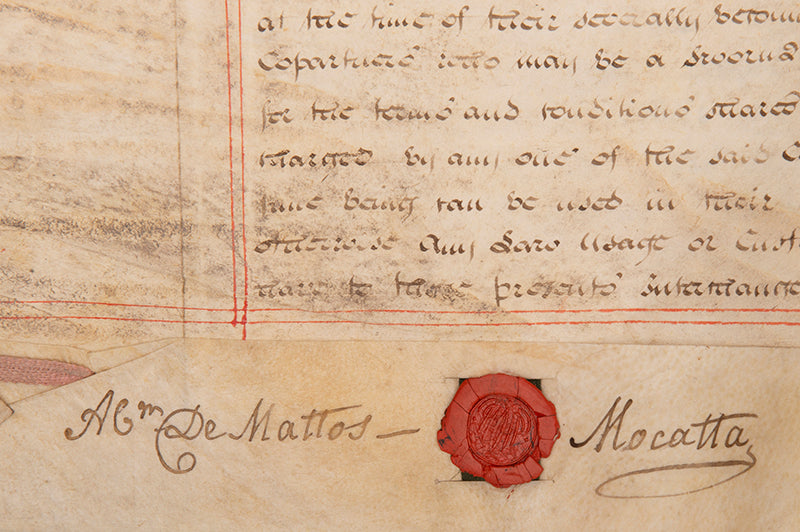 at the time of their severally becom
Copartners who may be a
for the terms and conditions shares
charged by any one of the said C
time being can be used in their
otherwise Any Law Usage or Cust
have to these presents Interchange
Abm De Mattos — Mocatta